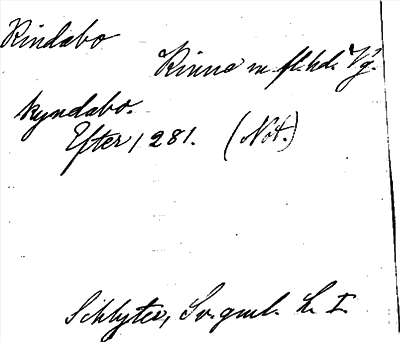 Kindabo
Kinne m fl. hd. Vg.
kyndabo.
Efter 1281. (Not.)
Schlyter, Sv. gml. L. I.